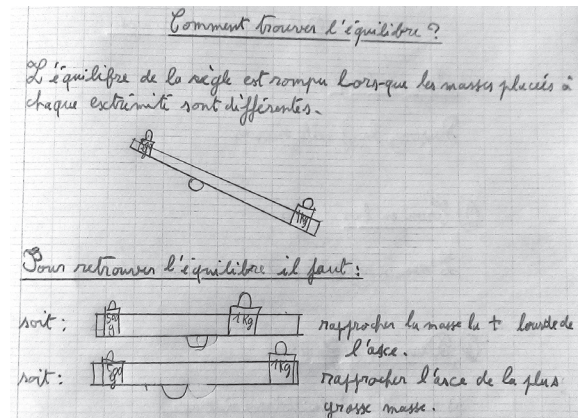 Comment trouver l'équilibre ?
L'équilibre de la règle est rompu lors-que les masses placées à
chaque extrémité sont différentes.
1 Kg
Pour retrouver l'équilibre il faut :
soit : 500 g 1 Kg rapprocher la masse la + lourde de
l'axe.
soit : 500 1 Kg rapprocher l'axe de la plus
grosse masse.